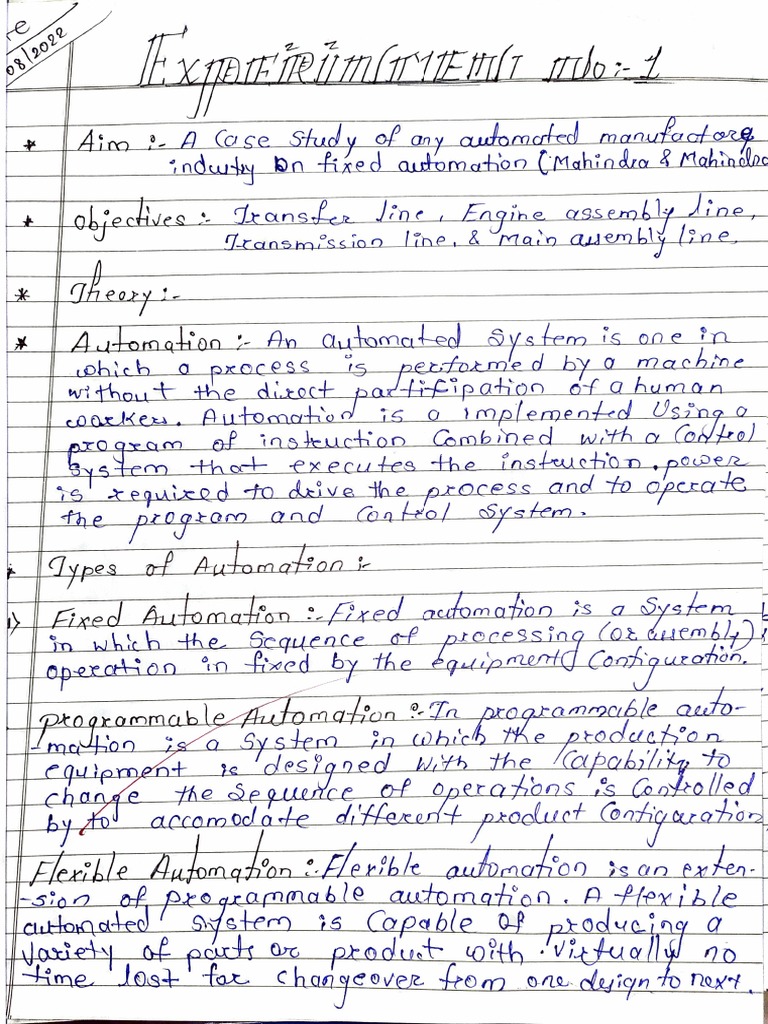 08/2022
Experiment no:- 1
* Aim :- A Case Study of any automated manufactore
industry on fixed automation (Mahindra & Mahindra
* Objectives :- Transfer line, Engine assembly line,
Transmission line. & Main assembly line.
* Theory :-
* Automation :- An automated System is one in
which a process is performed by a machine
without the direct partifipation of a human
woarkers. Automation is a implemented Using a
program of instruction Combined with a Control
System that executes the instruction. power
is required to drive the process and to operate
the program and Control System.
* Types of Automation :-
1) Fixed Automation :- Fixed automation is a System
in which the Sequence of processing (or assembly)
operation in fixed by the equipment Configuration.
programmable Automation :- In programmable auto-
-mation is a System in which the production
equipment is designed with the Capability to
change the Sequence of operations is Controlled
by to accomodate different product Configaration
Flexible Automation :- Flexible automation is an exten-
-sion of programmable automation. A flexible
automated System is Capable of producing a
Variety of parts or product with virtually no
time lost for changeover from one design to next.